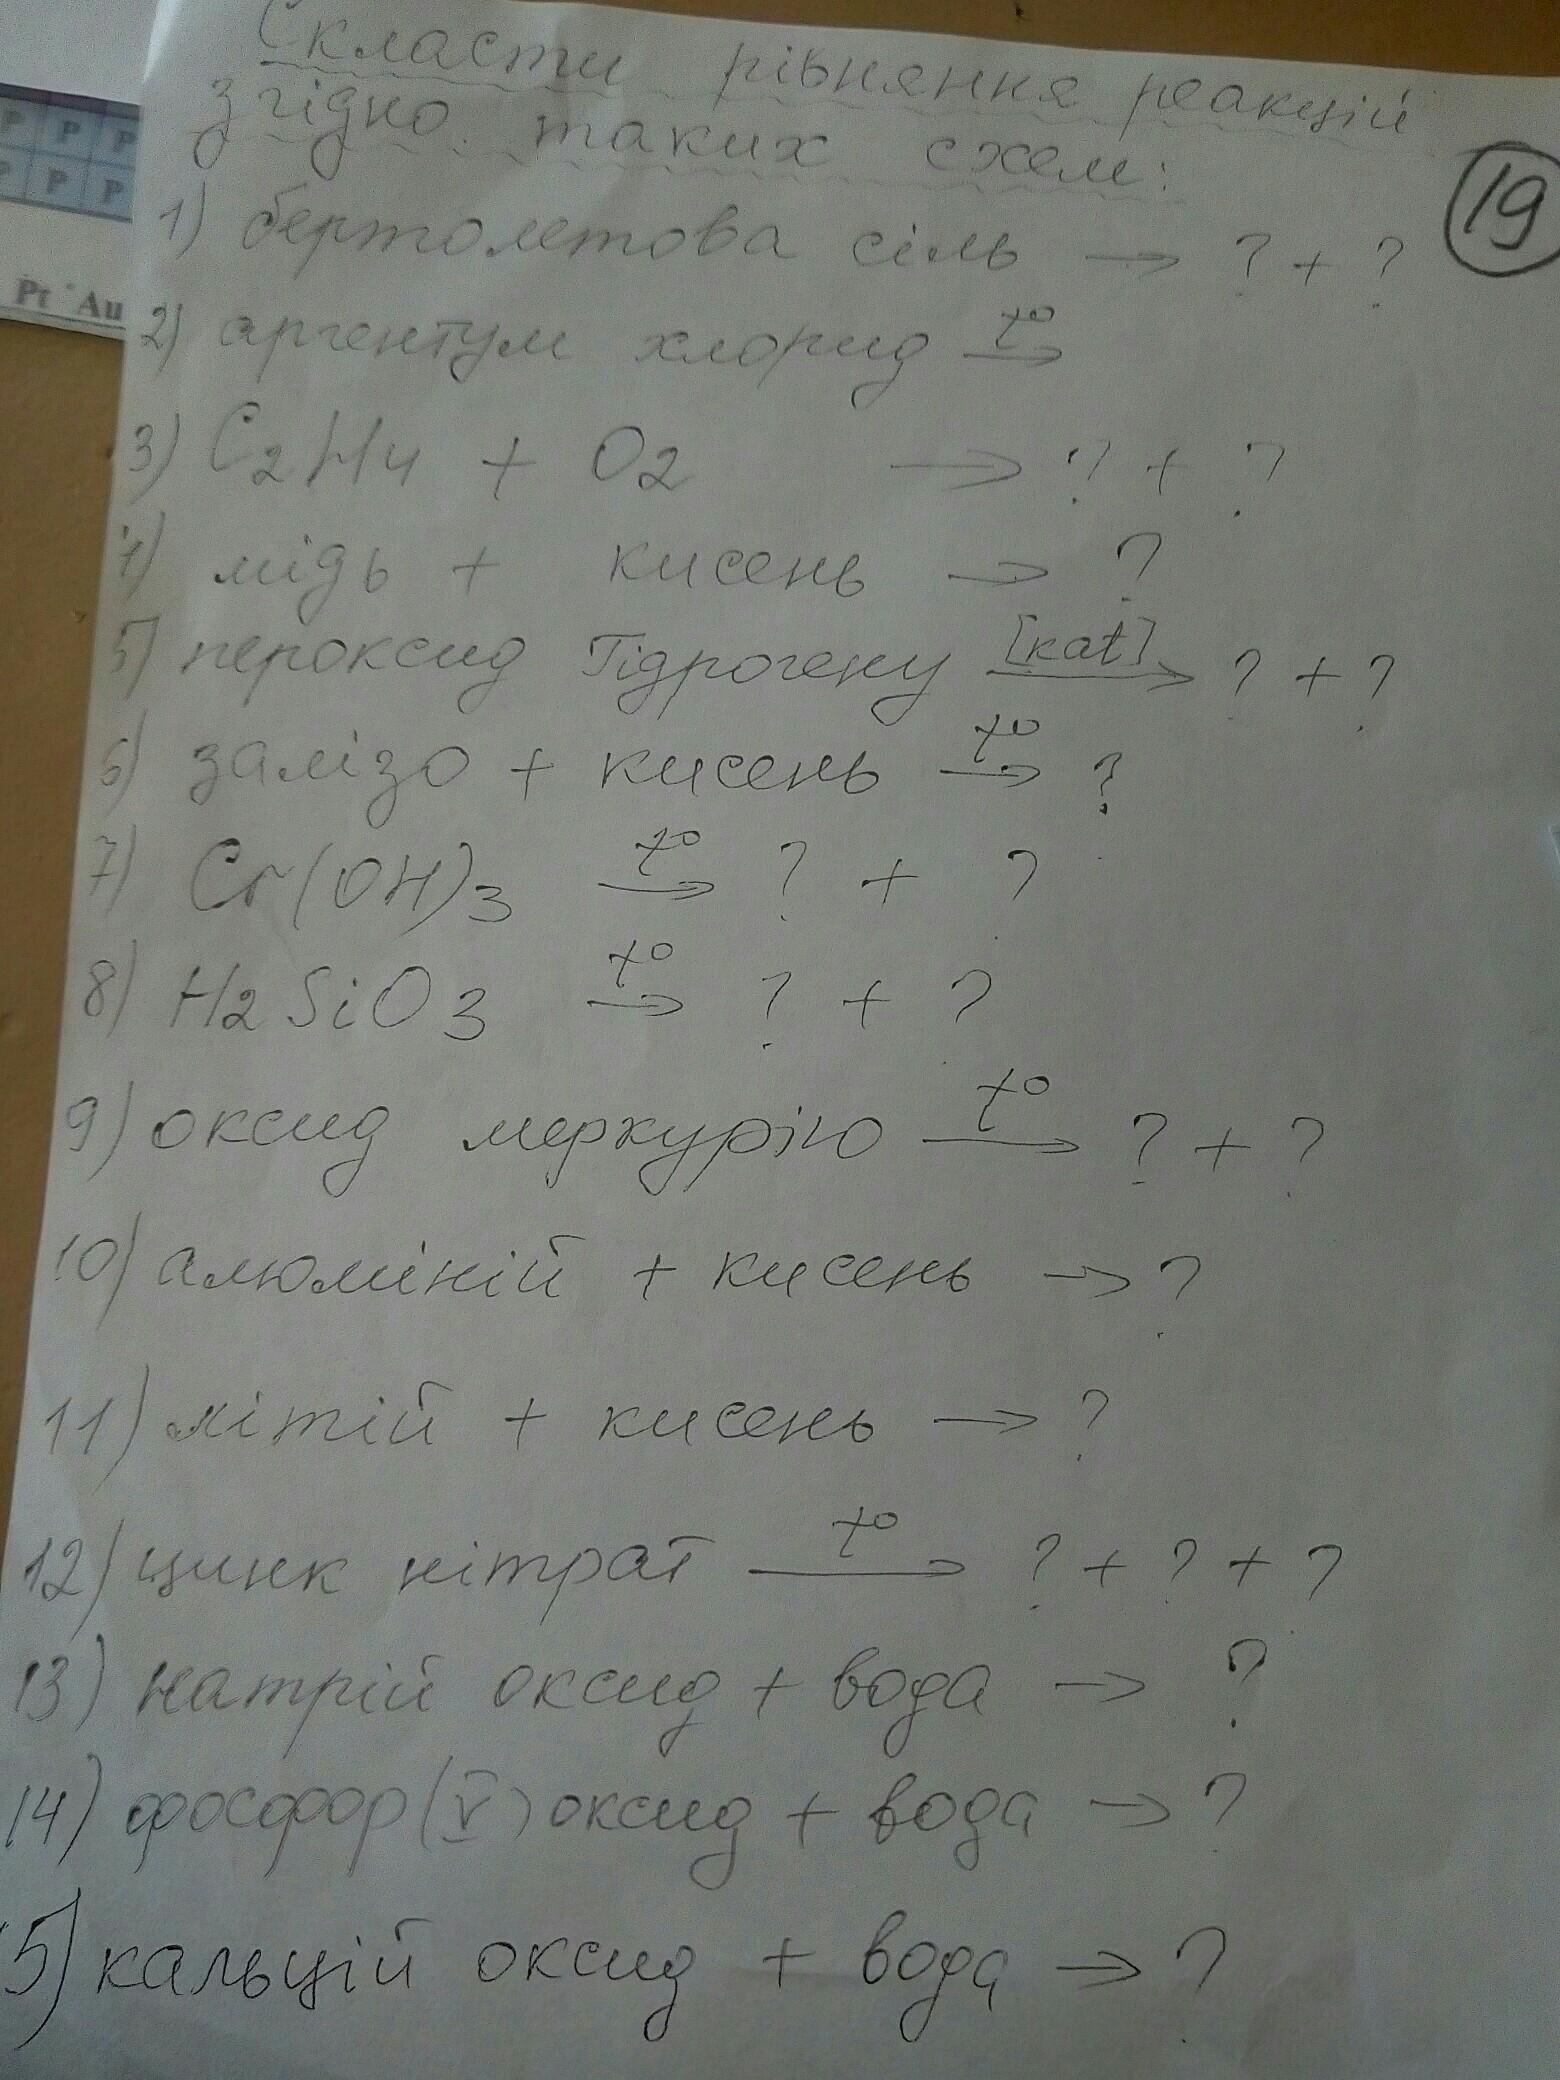 Скласти рівняння реакцій
згідно таких схем:
19
1) бертолетова сіль → ? + ?
2) аргентум хлорид t° →
3) C2H4 + O2 → ? + ?
4) мідь + кисень → ?
5) пероксид Гідрогену [kat] → ? + ?
6) залізо + кисень t° → ?
7) Cr(OH)3 t° → ? + ?
8) H2SiO3 t° → ? + ?
9) оксид меркурію t° → ? + ?
10) алюміній + кисень → ?
11) літій + кисень → ?
12) цинк нітрат t° → ? + ? + ?
13) натрій оксид + вода → ?
14) фосфор (V) оксид + вода → ?
5) кальцій оксид + вода → ?
P P P
P P P
Pt Au